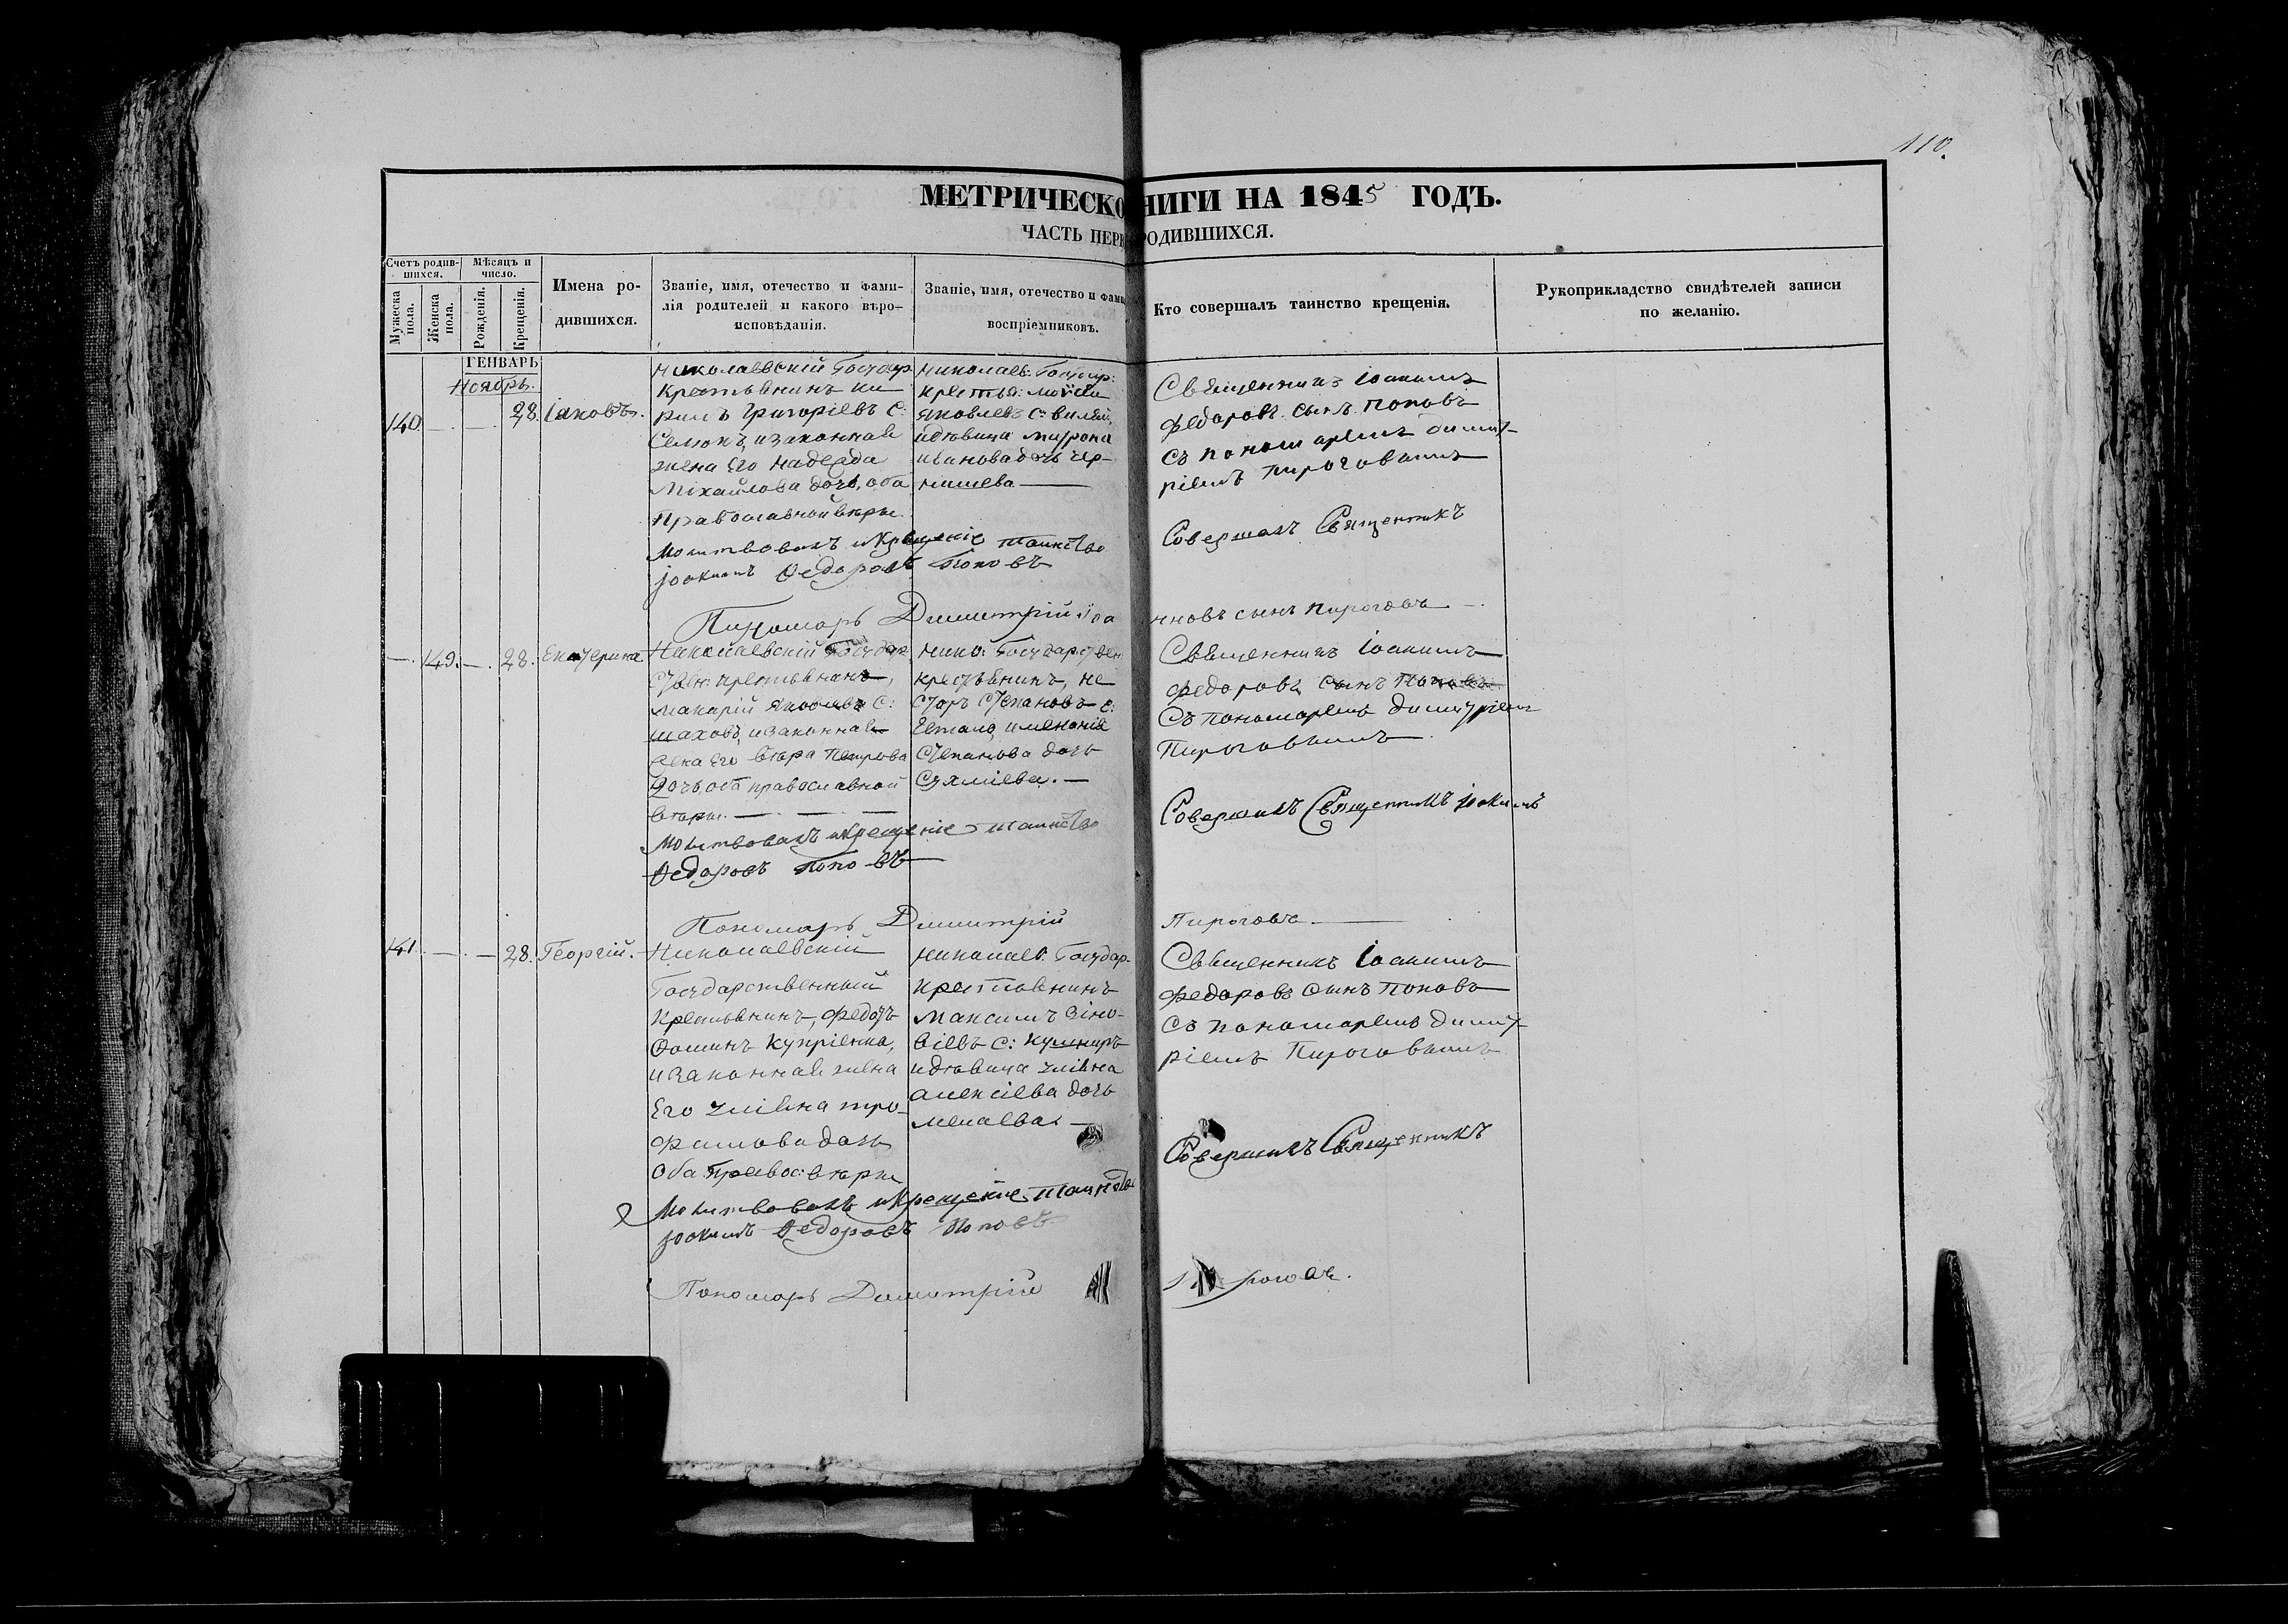 110.
МЕТРИЧЕСКО НИГИ НА 1845 ГОДЪ.
ЧАСТЬ ПЕРВ РОДИВШИХСЯ.
Счетъ родив-
шихся.
Мужеска
пола.
Женска
пола.
Мѣсяцъ и
число.
Рожденія.
Крещенія.
Имена ро-
дившихся.
Званіе, имя, отечество и фами-
лія родителей и какого вѣро-
исповѣданія.
Званіе, имя, отечество и фами
воспріемниковъ.
Кто совершалъ таинство крещенія.
Рукоприкладство свидѣтелей записи
по желанію.
ГЕНВАРЬ
Ноябрь.
140. — — 28. Іаковъ.
Николаевскій Государ
Крестьянинъ Ки
рилъ Григоріевъ С:
и законная
жена Его Надежда
Михайлова дочь, оба
Православной вѣры.
Николаев: Государ:
Крестья:
Яковлевъ с:
и дѣвица
Иванова дочь Чер-
нишева —
Священникъ Іоакимъ
Федоровъ сынъ Поповъ
съ пономаремъ Димит-
ріемъ Пироговымъ
Молитвовалъ и Крещеніе таинство Совершалъ Священникъ
Іоакимъ Федоровъ Поповъ
Пономарь Димитрій Іоа нновъ сынъ Пироговъ —.
— 149. — 28. Екатерина
Николаевскій Государ
ствен: крестьянинъ,
Макарій Яковлевъ С:
Шаховъ, и законная
жена Его Вѣра Петрова
Дочь, оба православной
вѣры. — — —
Нико: Государствен:
крестьянинъ, Не
сторъ Степановъ С:
Степанова дочь
—
Священникъ Іоакимъ
Федоровъ сынъ Поповъ
съ пономаремъ Димитріемъ
Пироговымъ.
Молитвовалъ и Крещеніе таинство Совершалъ Священникъ Іоакимъ
Федоровъ Поповъ
Пономарь Димитрій Пироговъ —
141. — — 28. Георгій.
Николаевскій
Государственный
Крестьянинъ, Федотъ
Фоминъ Купріенко,
и законная жена
Его Уліяна Тро-
фимова дочь
Оба Правос: вѣры
Николаев: Государ-
крестьянинъ
Максимъ Зино-
віевъ С: Кушниръ
и дѣвица Уліяна
Алексіева дочь
—
Священникъ Іоакимъ
Федоровъ сынъ Поповъ
съ пономаремъ Димит-
ріемъ Пироговымъ
Молитвовалъ и Крещеніе таинство Совершалъ Священникъ
Іоакимъ Федоровъ Поповъ
Пономарь Димитрій Пироговъ.